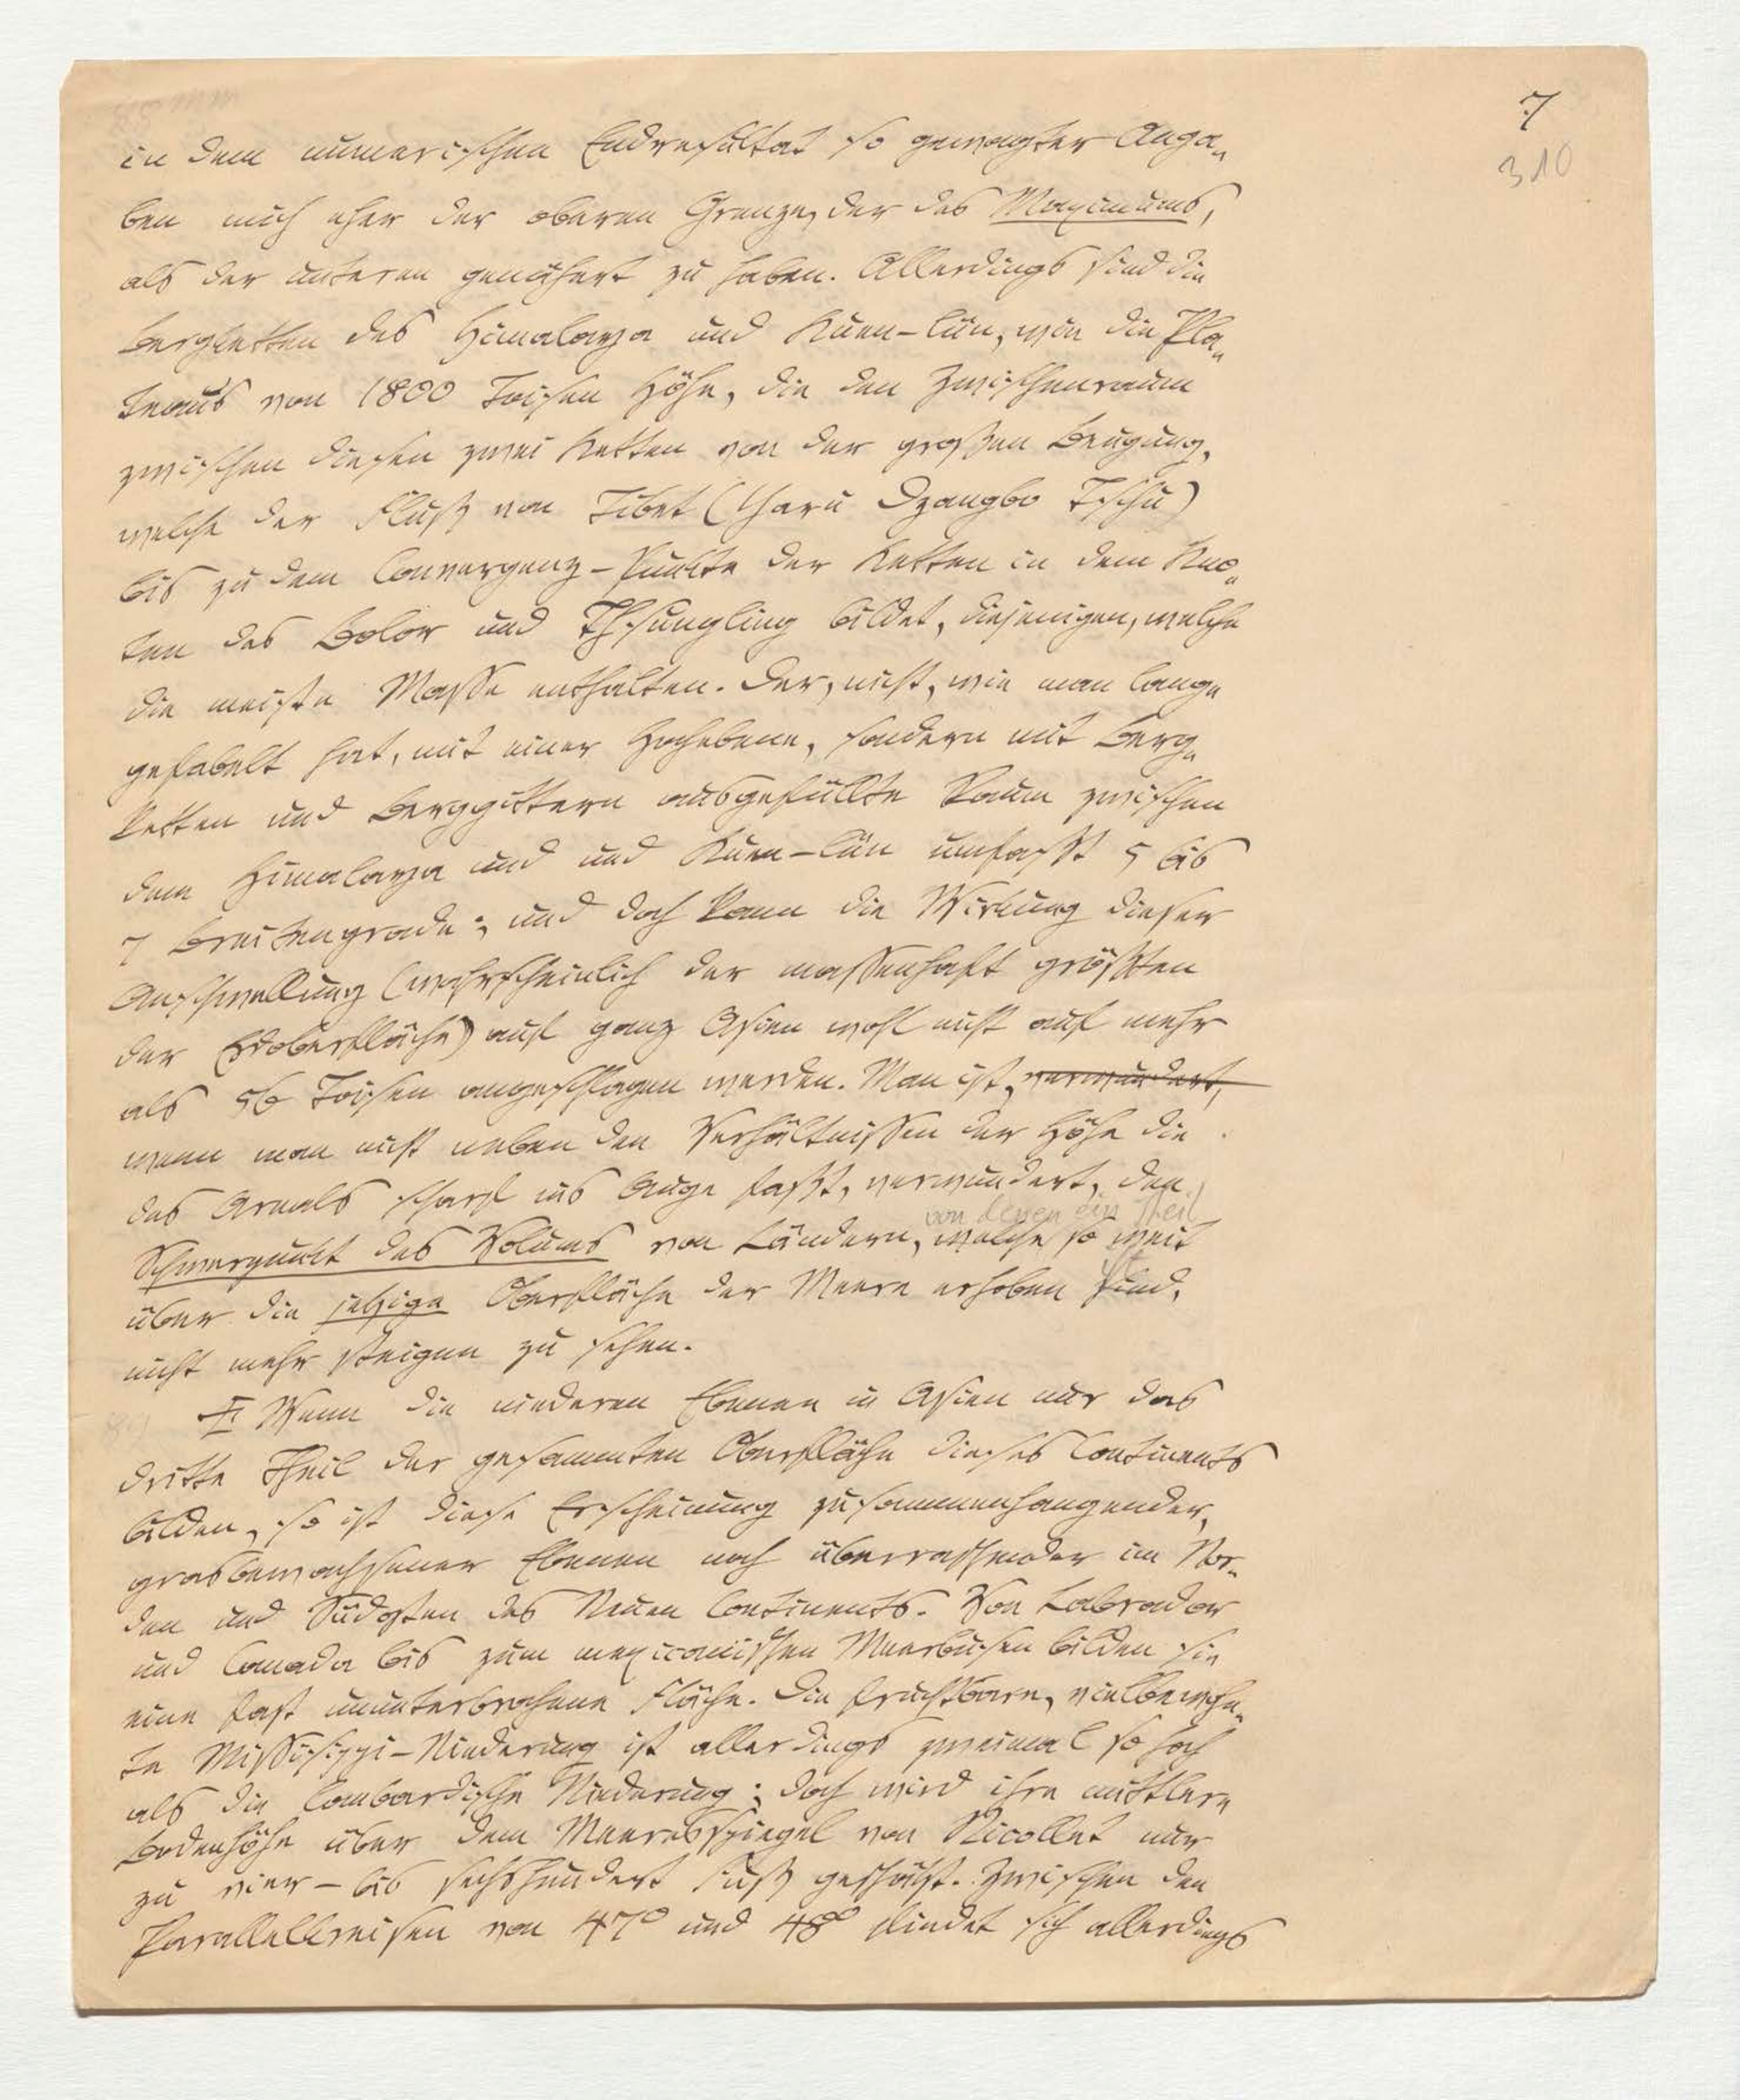 7
310
in dem numerischen Endresultat so gewagter Anga-
ben mich eher der oberen Grenze, der des Maximums,
als der unteren genähert zu haben. Allerdings sind die
Bergketten des Himalaya und Kuen-lün, wie die Pla-
teaus von 1800 Toisen Höhe, die den Zwischenraum
zwischen diesen zwei Ketten von der großen Beugung,
welche der Fluß von Tibet (Yaru Dzangbo Tschu)
bis zu dem Convergenz-Punkte der Ketten in dem Kno-
ten des Bolor und Thsungling bildet, diejenigen, welche
die meiste Masse enthalten. Der, nicht, wie man lange
gefabelt hat, mit einer Hochebene, sondern mit Berg-
ketten und Berggittern ausgefüllte Raum zwischen
dem Himalaya und und Kuen-lün umfaßt 5 bis
7 Breitengrade; und doch kann die Wirkung dieser
Anschwellung (wahrscheinlich der massenhaft größten
der Erdoberfläche) auf ganz Asien wohl nicht auf mehr
als 56 Toisen angeschlagen werden. Man ist, verwundert,
wenn man nicht neben den Verhältnissen der Höhe die
des Areals scharf ins Auge faßt, verwundert, den
von denen ein Theil
Schwerpunkt des Volums von Ländern, welche so weit
über die jetzige Oberfläche der Meere erhoben sind,
nicht mehr steigen zu sehen.
II Wenn die niederen Ebenen in Asien nur das
dritte Theil der gesammten Oberfläche dieses Continents
bilden, so ist diese Erscheinung zusammenhangender,
grasbewachsener Ebenen noch überraschender im Nor-
den und Südosten des Neuen Continents. Von Labrador
und Canada bis zum mexicanischen Meerbusen bilden sie
eine fast ununterbrochene Fläche. Die fruchtbare, vielbewohn-
te Missisippi-Niederung ist allerdings zweimal so hoch
als die lombardische Niederung; doch wird ihre mittlere
Bodenhöhe über dem Meeresspiegel von Nicollet nur
zu vier- bis sechshundert Fuß geschätzt. Zwischen den
Parallelkreisen von 47° und 48° findet sich allerdings